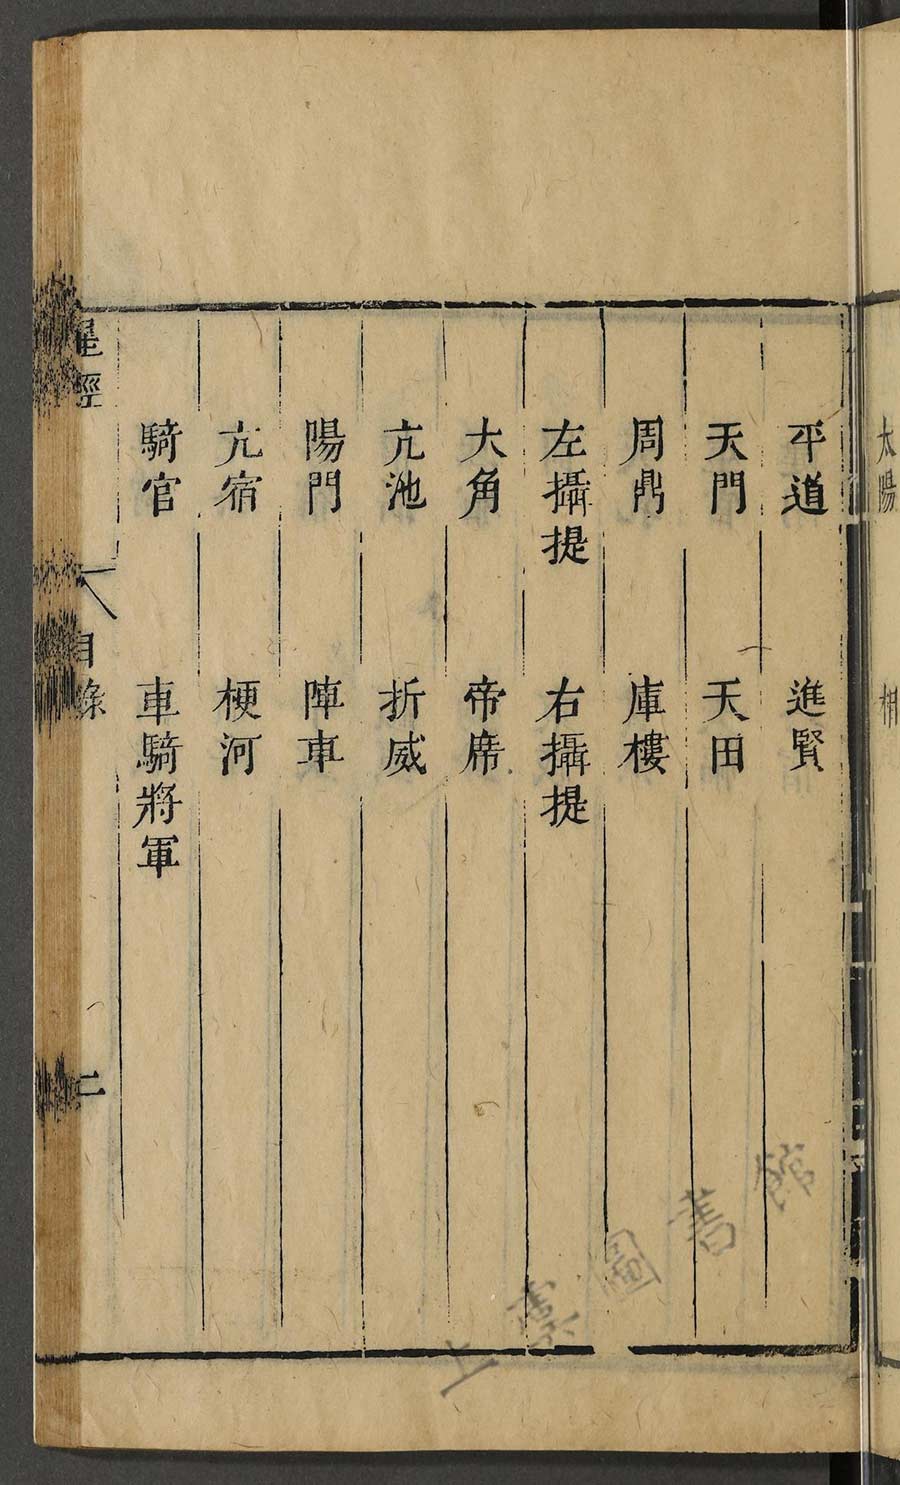 太陽
相
平道　進賢
天門　天田
周鼎　庫樓
左攝提　右攝提
大角　帝席
亢池　折威
陽門　陣車
亢宿　梗河
騎官　車騎將軍
星經
目錄
二
上虞圖書館